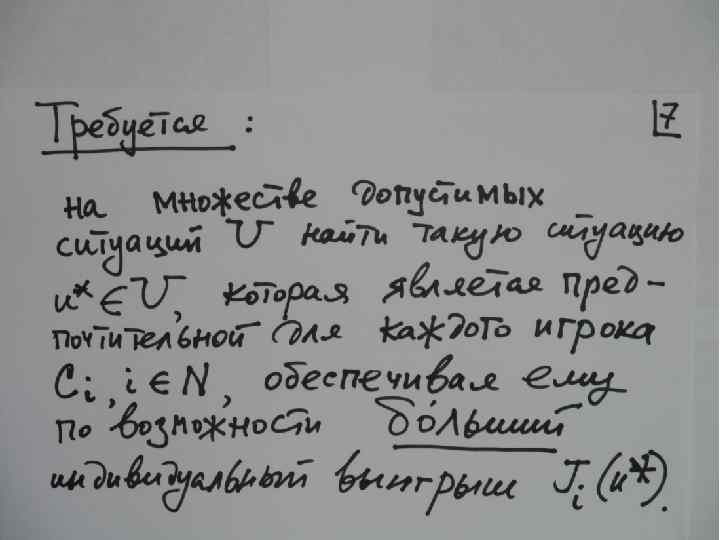 Требуется : 7
на множестве допустимых
ситуаций U найти такую ситуацию
u* ∈ U, которая является пред-
почтительной для каждого игрока
Cᵢ, i ∈ N, обеспечивая ему
по возможности бо́льший
индивидуальный выигрыш Jᵢ(u*).